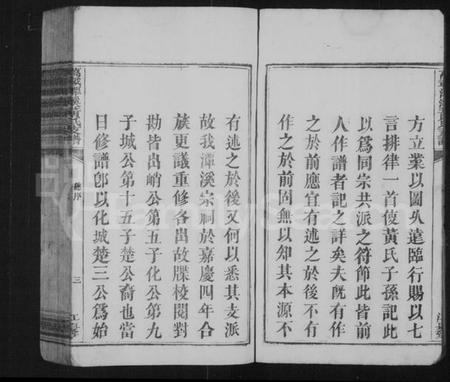 方立業以圖久遠臨行賜以七
言排律一首使黃氏子孫記此
以爲同宗共派之符節此皆前
人作譜者記之詳矣夫旣有作
之於前應宜有述之於後不有
作之於前固無以知其本源不
有述之於後又何以悉其支派
故我潭溪宗祠於嘉慶四年合
族更議重修各出故牒校閱對
勘皆出峭公第五子化公第九
子城公第十五子楚公裔也當
日修譜卽以化城楚三公爲始
序
三